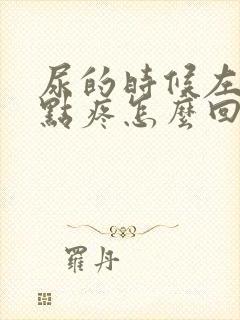 尿的時候左
點疼怎麼回
羅丹